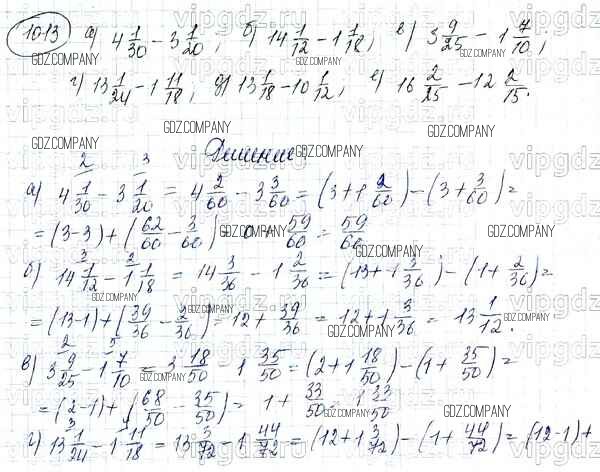 1013 а) 4 1/30 − 3 1/20; б) 14 1/12 − 1 1/18; в) 3 9/25 − 1 7/10;
г) 13 1/24 − 1 11/18; д) 13 1/18 − 10 1/12; е) 16 2/25 − 12 2/15.
Решение:
а) 4 1/30 − 3 1/20 = 4 2/60 − 3 3/60 = (3+1 2/60) − (3 + 3/60) =
= (3−3) + (62/60 − 3/60) = 0 + 59/60 = 59/60
б) 14 1/12 − 1 1/18 = 14 3/36 − 1 2/36 = (13+1 3/36) − (1 + 2/36) =
= (13−1) + (39/36 − 2/36) = 12 + 39/36 = 12+1 3/36 = 13 1/12.
в) 3 9/25 − 1 7/10 = 3 18/50 − 1 35/50 = (2+1 18/50) − (1 + 35/50) =
= (2−1) + (68/50 − 35/50) = 1 + 33/50 = 1 33/50
г) 13 1/24 − 1 11/18 = 13 3/72 − 1 44/72 = (12+1 3/72) − (1 + 44/72) = (12−1) +
GDZ.COMPANY
vipgdz.ru